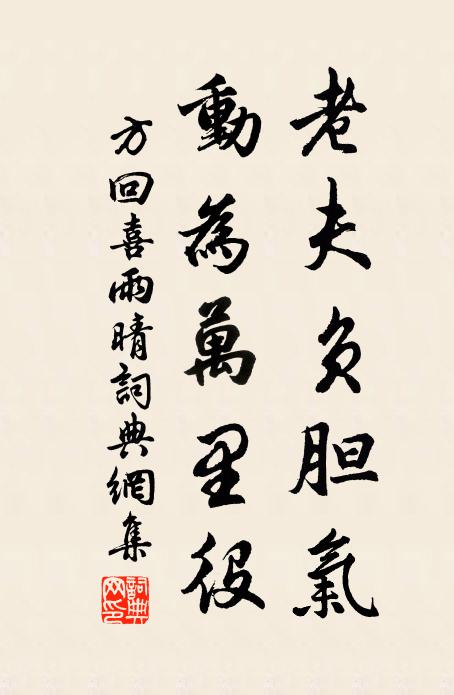 老夫负胆氣
動為萬里役
方回喜雨晴詞典網集
詞典网印